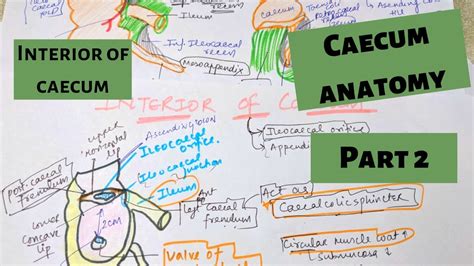 caecum
Ascending Co
Inf. Ileocaecal
recess
Mesoappendix
INTERIOR OF
CAECUM
CAECUM
ANATOMY
PART 2
INTERIOR OF
Ileocaecal orifice
Append
Ascending colon
upper
horizontal
lip
Ileocaecal
orifice
Ileocaecal
junction
Ileum
Post. caecal
Frenulum
Ant
left caecal
frenulum
2cm
lower
concave
lip
valve of
Act as
Caecalcolic sphincter
Circular muscle coat ↑
Submucosa